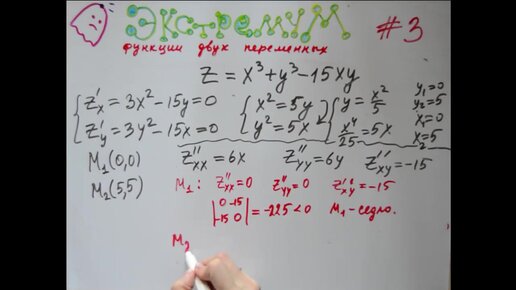 ЭКСТРЕМУМ #3
функции двух переменных
Z = x³+y³-15xy
{ Z'x = 3x²-15y=0 { x²=5y { y = x²/5 y₁=0
{ Z'y = 3y²-15x=0 { y²=5x { x⁴/25 = 5x y₂=5 x₁=0 x₂=5
M₁(0,0) Z''xx = 6x Z''yy = 6y Z''xy = -15
M₂(5,5) M₁: Z''xx = 0 Z''yy = 0 Z''xy = -15
|0 -15| = -225 < 0 M₁-седло.
|-15 0|
M₂